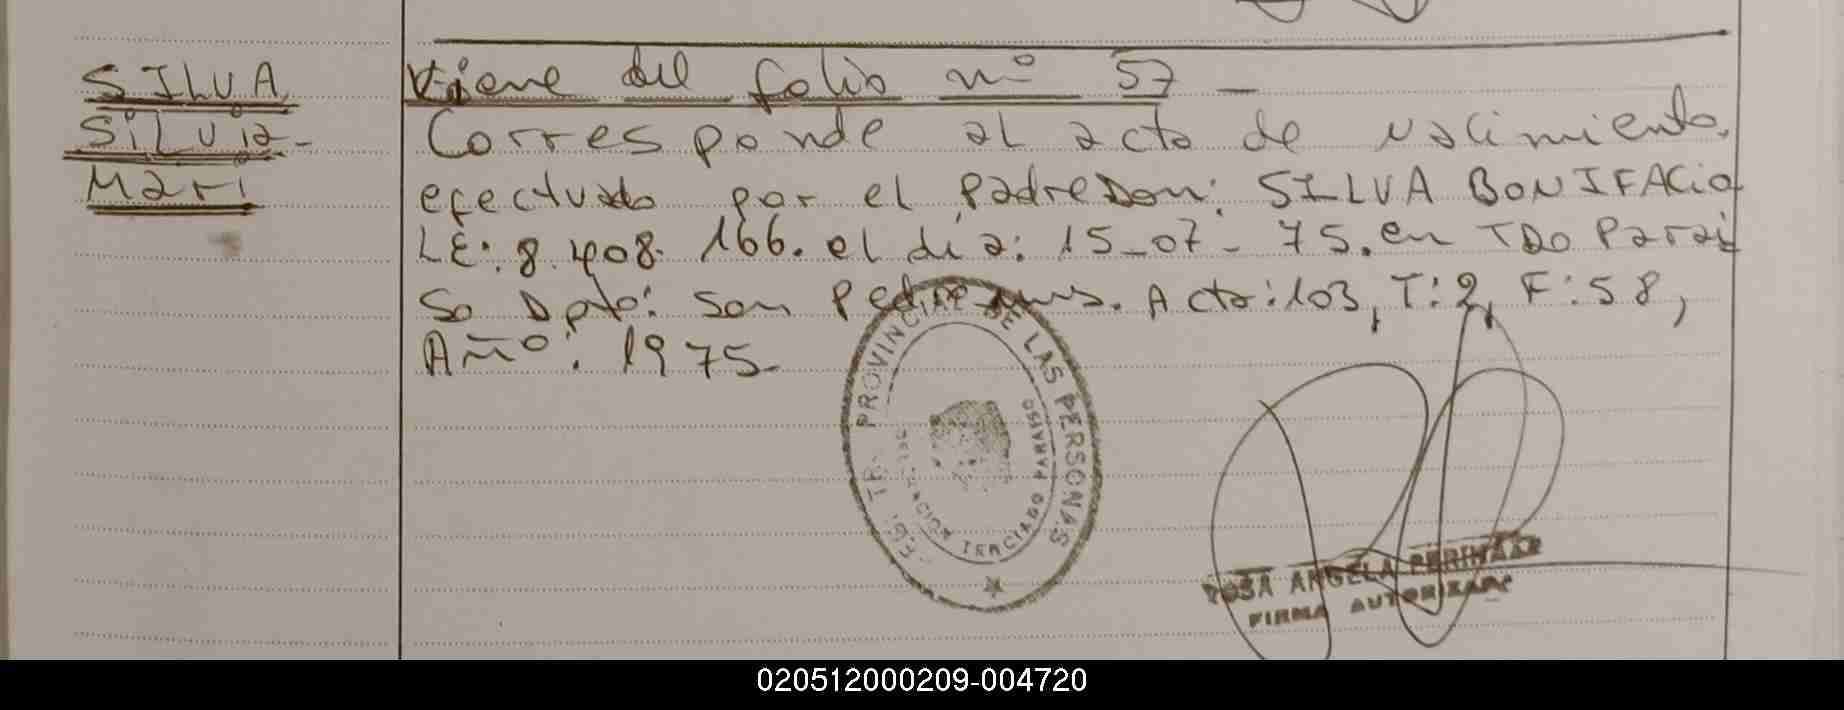 SILVA
SiLvia-
Mari
Viene del folio nº 57 -
Corresponde al acta de nacimiento,
efectuado por el padre Don: SILVA BONIFACio
LE: 8.408.166. el día: 15-07-75. en TDo Parai
So Dpto: San Pedro Acta: 103, T: 2, F: 58,
Año: 1975.
PROVINCIAL DE LAS PERSONAS
TERCIADO PARAISO
ROSA ANGELA
FIRMA AUTORIZADA
020512000209-004720